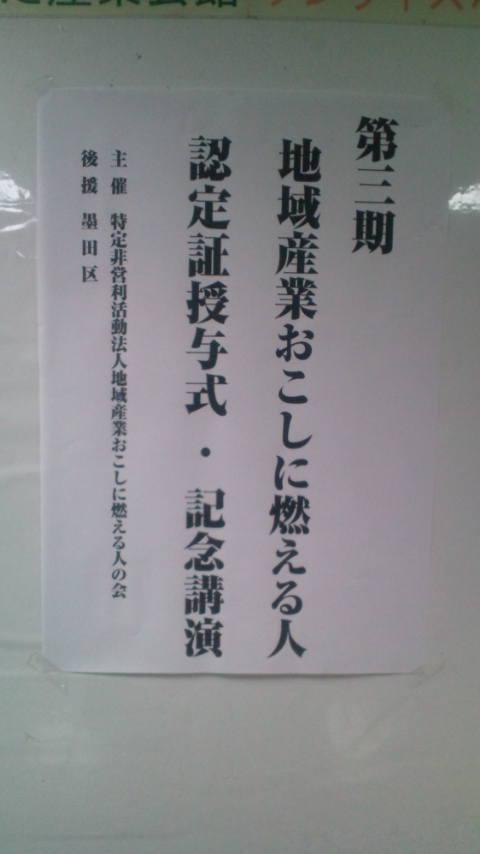 産業会館 サンライズ
第三期
地域産業おこしに燃える人
認定証授与式・記念講演
主催 特定非営利活動法人地域産業おこしに燃える人の会
後援 墨田区